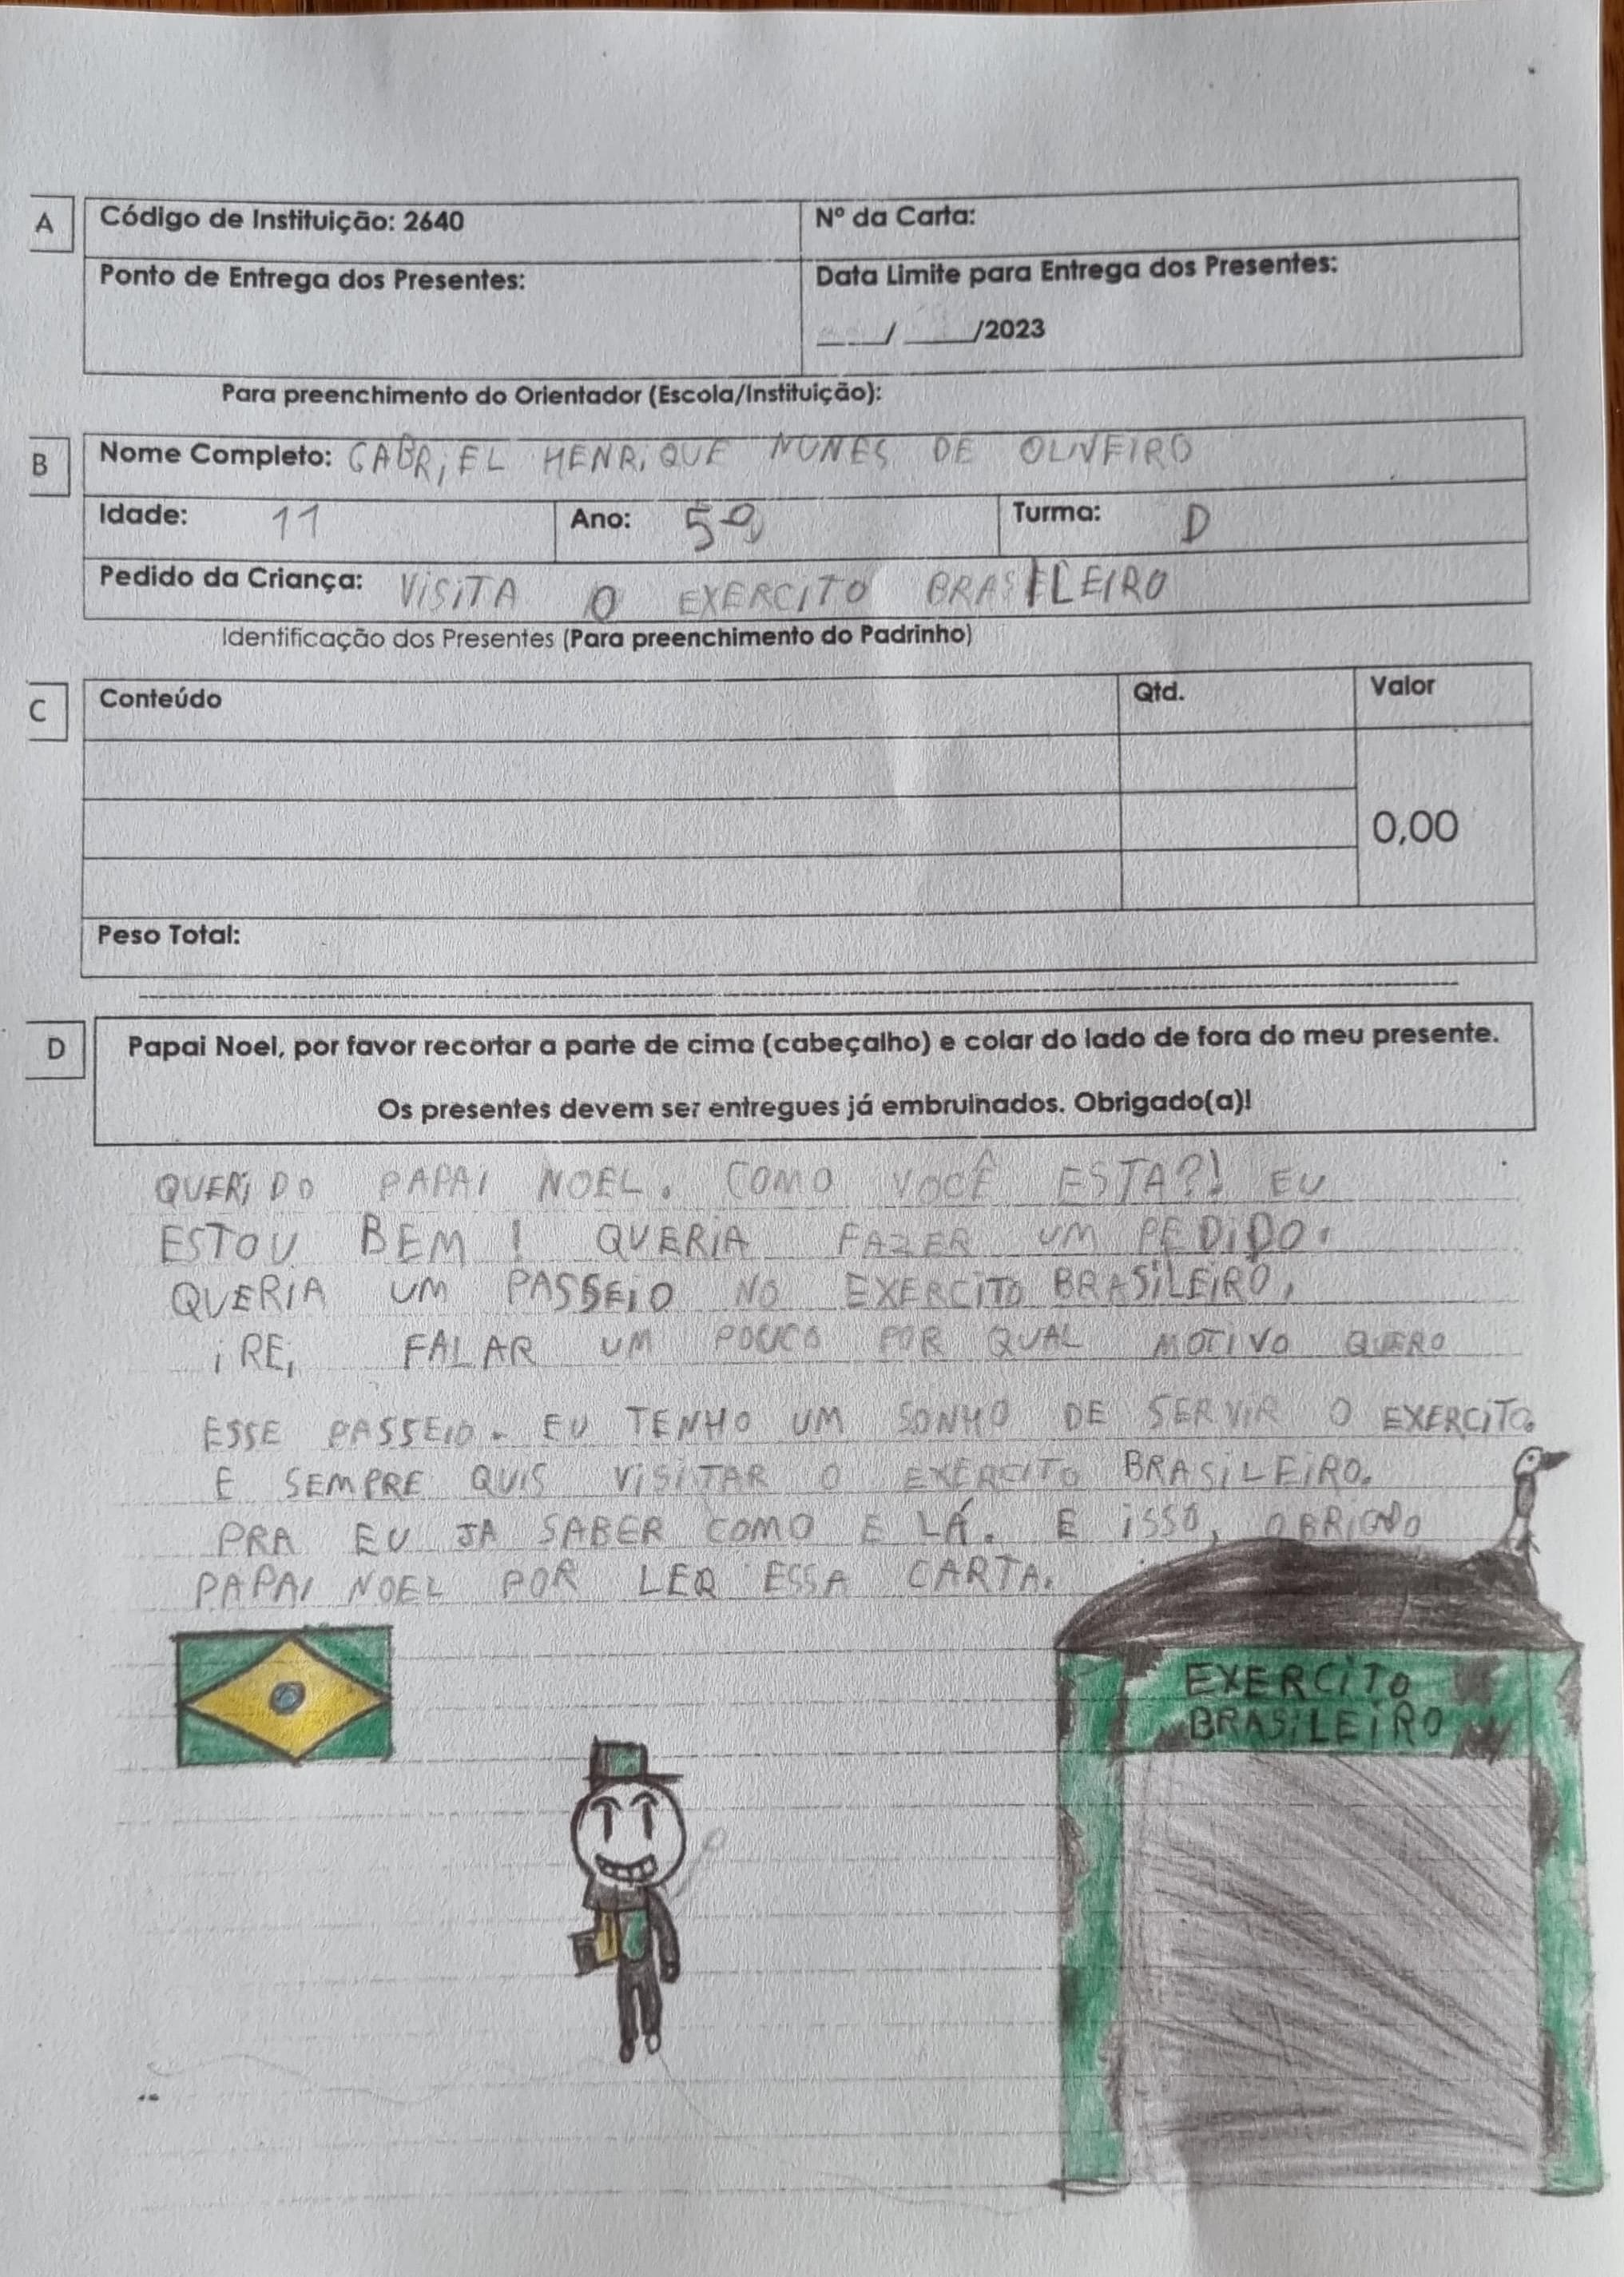 A
Código de Instituição: 2640
Nº da Carta:
Ponto de Entrega dos Presentes:
Data Limite para Entrega dos Presentes:
___/____/2023
Para preenchimento do Orientador (Escola/Instituição):
B
Nome Completo: GABRIEL HENRIQUE NUNES DE OLIVEIRO
Idade: 11
Ano: 5º
Turma: D
Pedido da Criança: VISITA O EXERCITO BRASILEIRO
Identificação dos Presentes (Para preenchimento do Padrinho)
C
Conteúdo
Qtd.
Valor
0,00
Peso Total:
D
Papai Noel, por favor recortar a parte de cima (cabeçalho) e colar do lado de fora do meu presente.
Os presentes devem ser entregues já embrulhados. Obrigado(a)!
QUERIDO PAPAI NOEL. COMO VOCÊ ESTA?! EU
ESTOU BEM! QUERIA FAZER UM PEDIDO.
QUERIA UM PASSEIO NO EXERCITO BRASILEIRO,
IREI FALAR UM POUCO POR QUAL MOTIVO QUERO
ESSE PASSEIO. EU TENHO UM SONHO DE SERVIR O EXERCITO.
E SEMPRE QUIS VISITAR O EXERCITO BRASILEIRO.
PRA EU JA SABER COMO E LÁ. E ISSO, OBRIGADO
PAPAI NOEL POR LER ESSA CARTA.
EXERCITO
BRASILEIRO